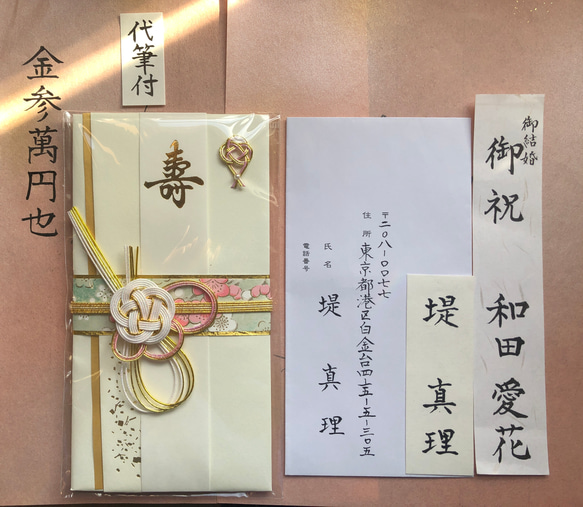 金参萬円也
代筆付
寿
〒二〇八-〇〇七七
住所 東京都港区白金台四-五-五-三〇五
氏名 堤 真理
電話番号
堤 真理
御結婚
御祝 和田 愛花